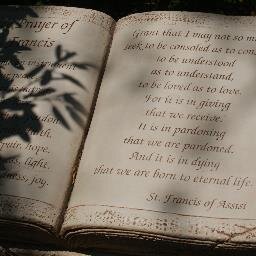 Prayer of
Francis
hope.
light.
ness, joy.
Grant that I may not so m
seek to be consoled as to con
to be understood
as to understand,
to be loved as to love.
For it is in giving
that we receive.
It is in pardoning
that we are pardoned.
And it is in dying
that we are born to eternal life.
St. Francis of Assisi